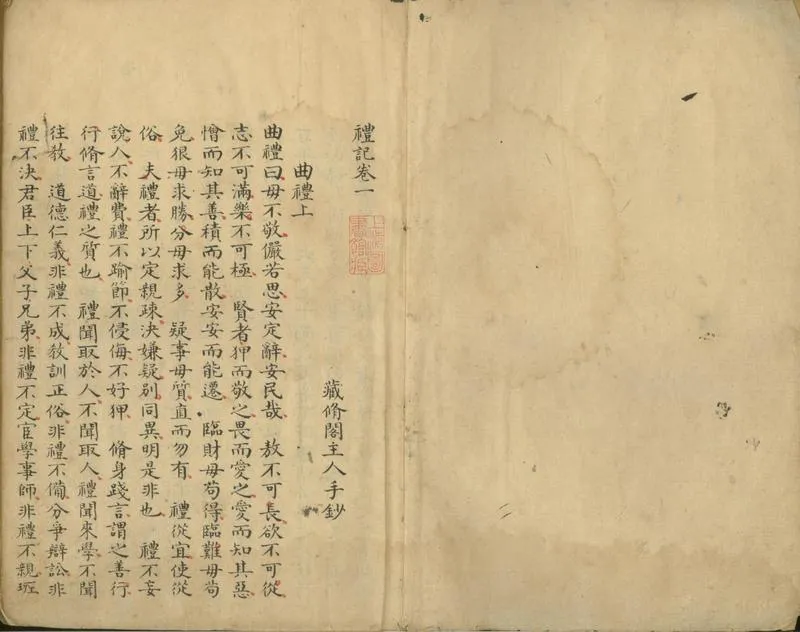 禮記卷一
藏脩閣主人手鈔
曲禮上
曲禮曰毋不敬儼若思安定辭安民哉 敖不可長欲不可從
志不可滿樂不可極 賢者狎而敬之畏而愛之愛而知其惡
憎而知其善積而能散安安而能遷 臨財毋苟得臨難毋苟
免狠毋求勝分毋求多 疑事毋質直而勿有 禮從宜使從
俗 夫禮者所以定親疎決嫌疑別同異明是非也 禮不妄
說人不辭費禮不踰節不侵侮不好狎 脩身踐言謂之善行
行脩言道禮之質也 禮聞取於人不聞取人禮聞來學不聞
往教 道德仁義非禮不成教訓正俗非禮不備分爭辯訟非
禮不決君臣上下父子兄弟非禮不定宦學事師非禮不親班